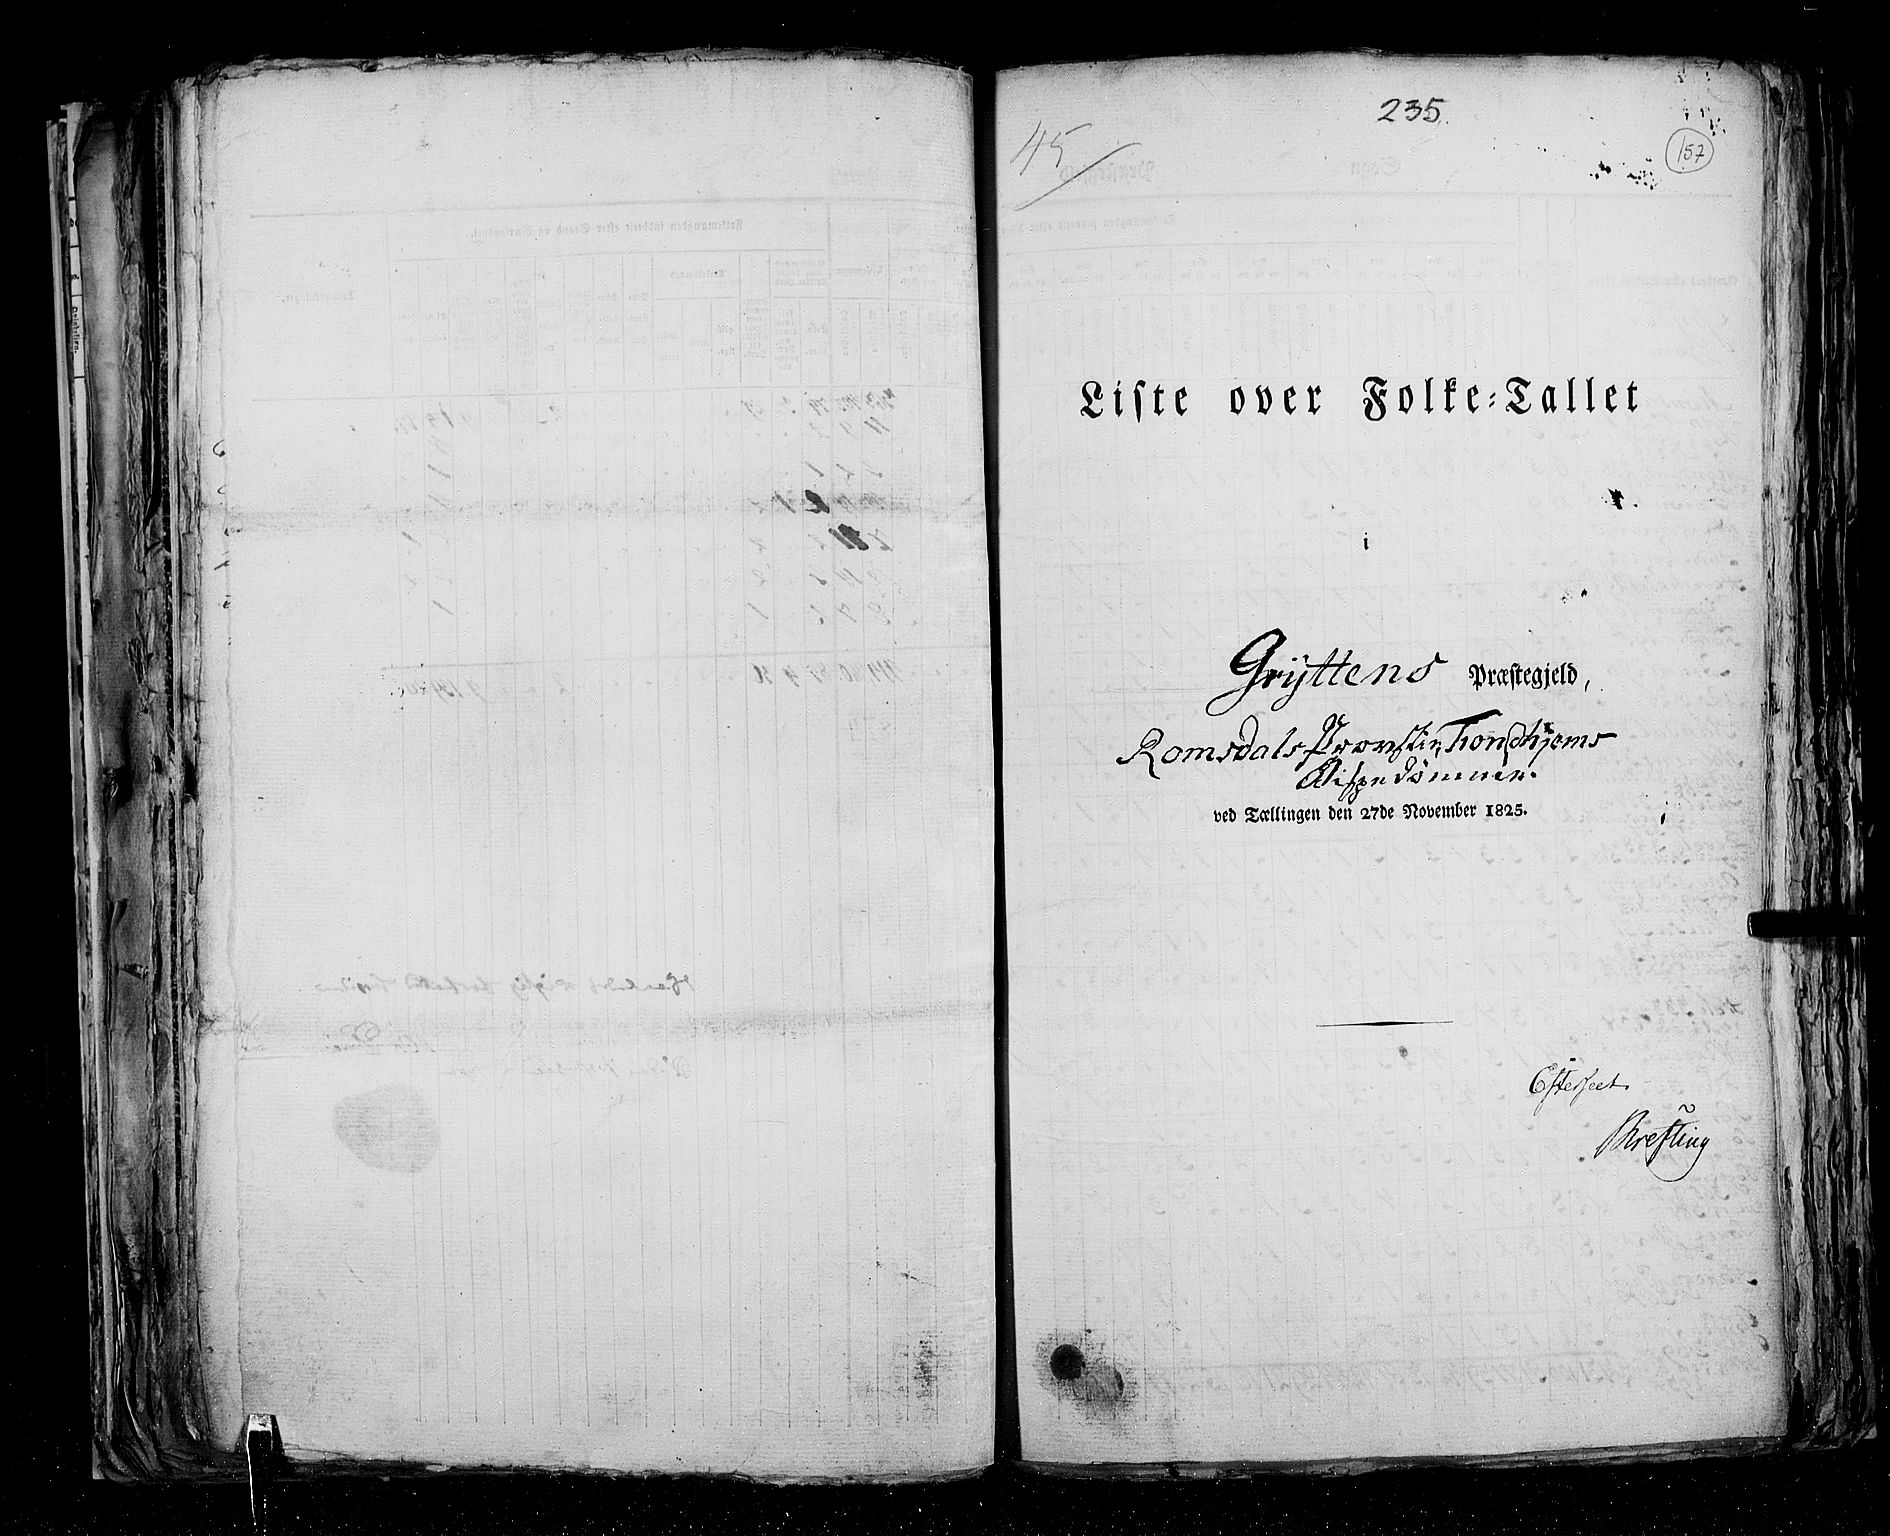 235.
45
157
Liste over Folke-Tallet
i
Grÿttens Præstegjeld,
Romsdals Provstie, Trondhjems
Bispedömme.
ved Tællingen den 27de November 1825.
Efterseet.